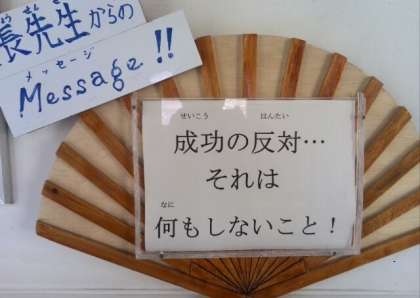 長先生からの
メッセージ
Message!!
せいこう はんたい
成功の反対…
それは
なに
何もしないこと!